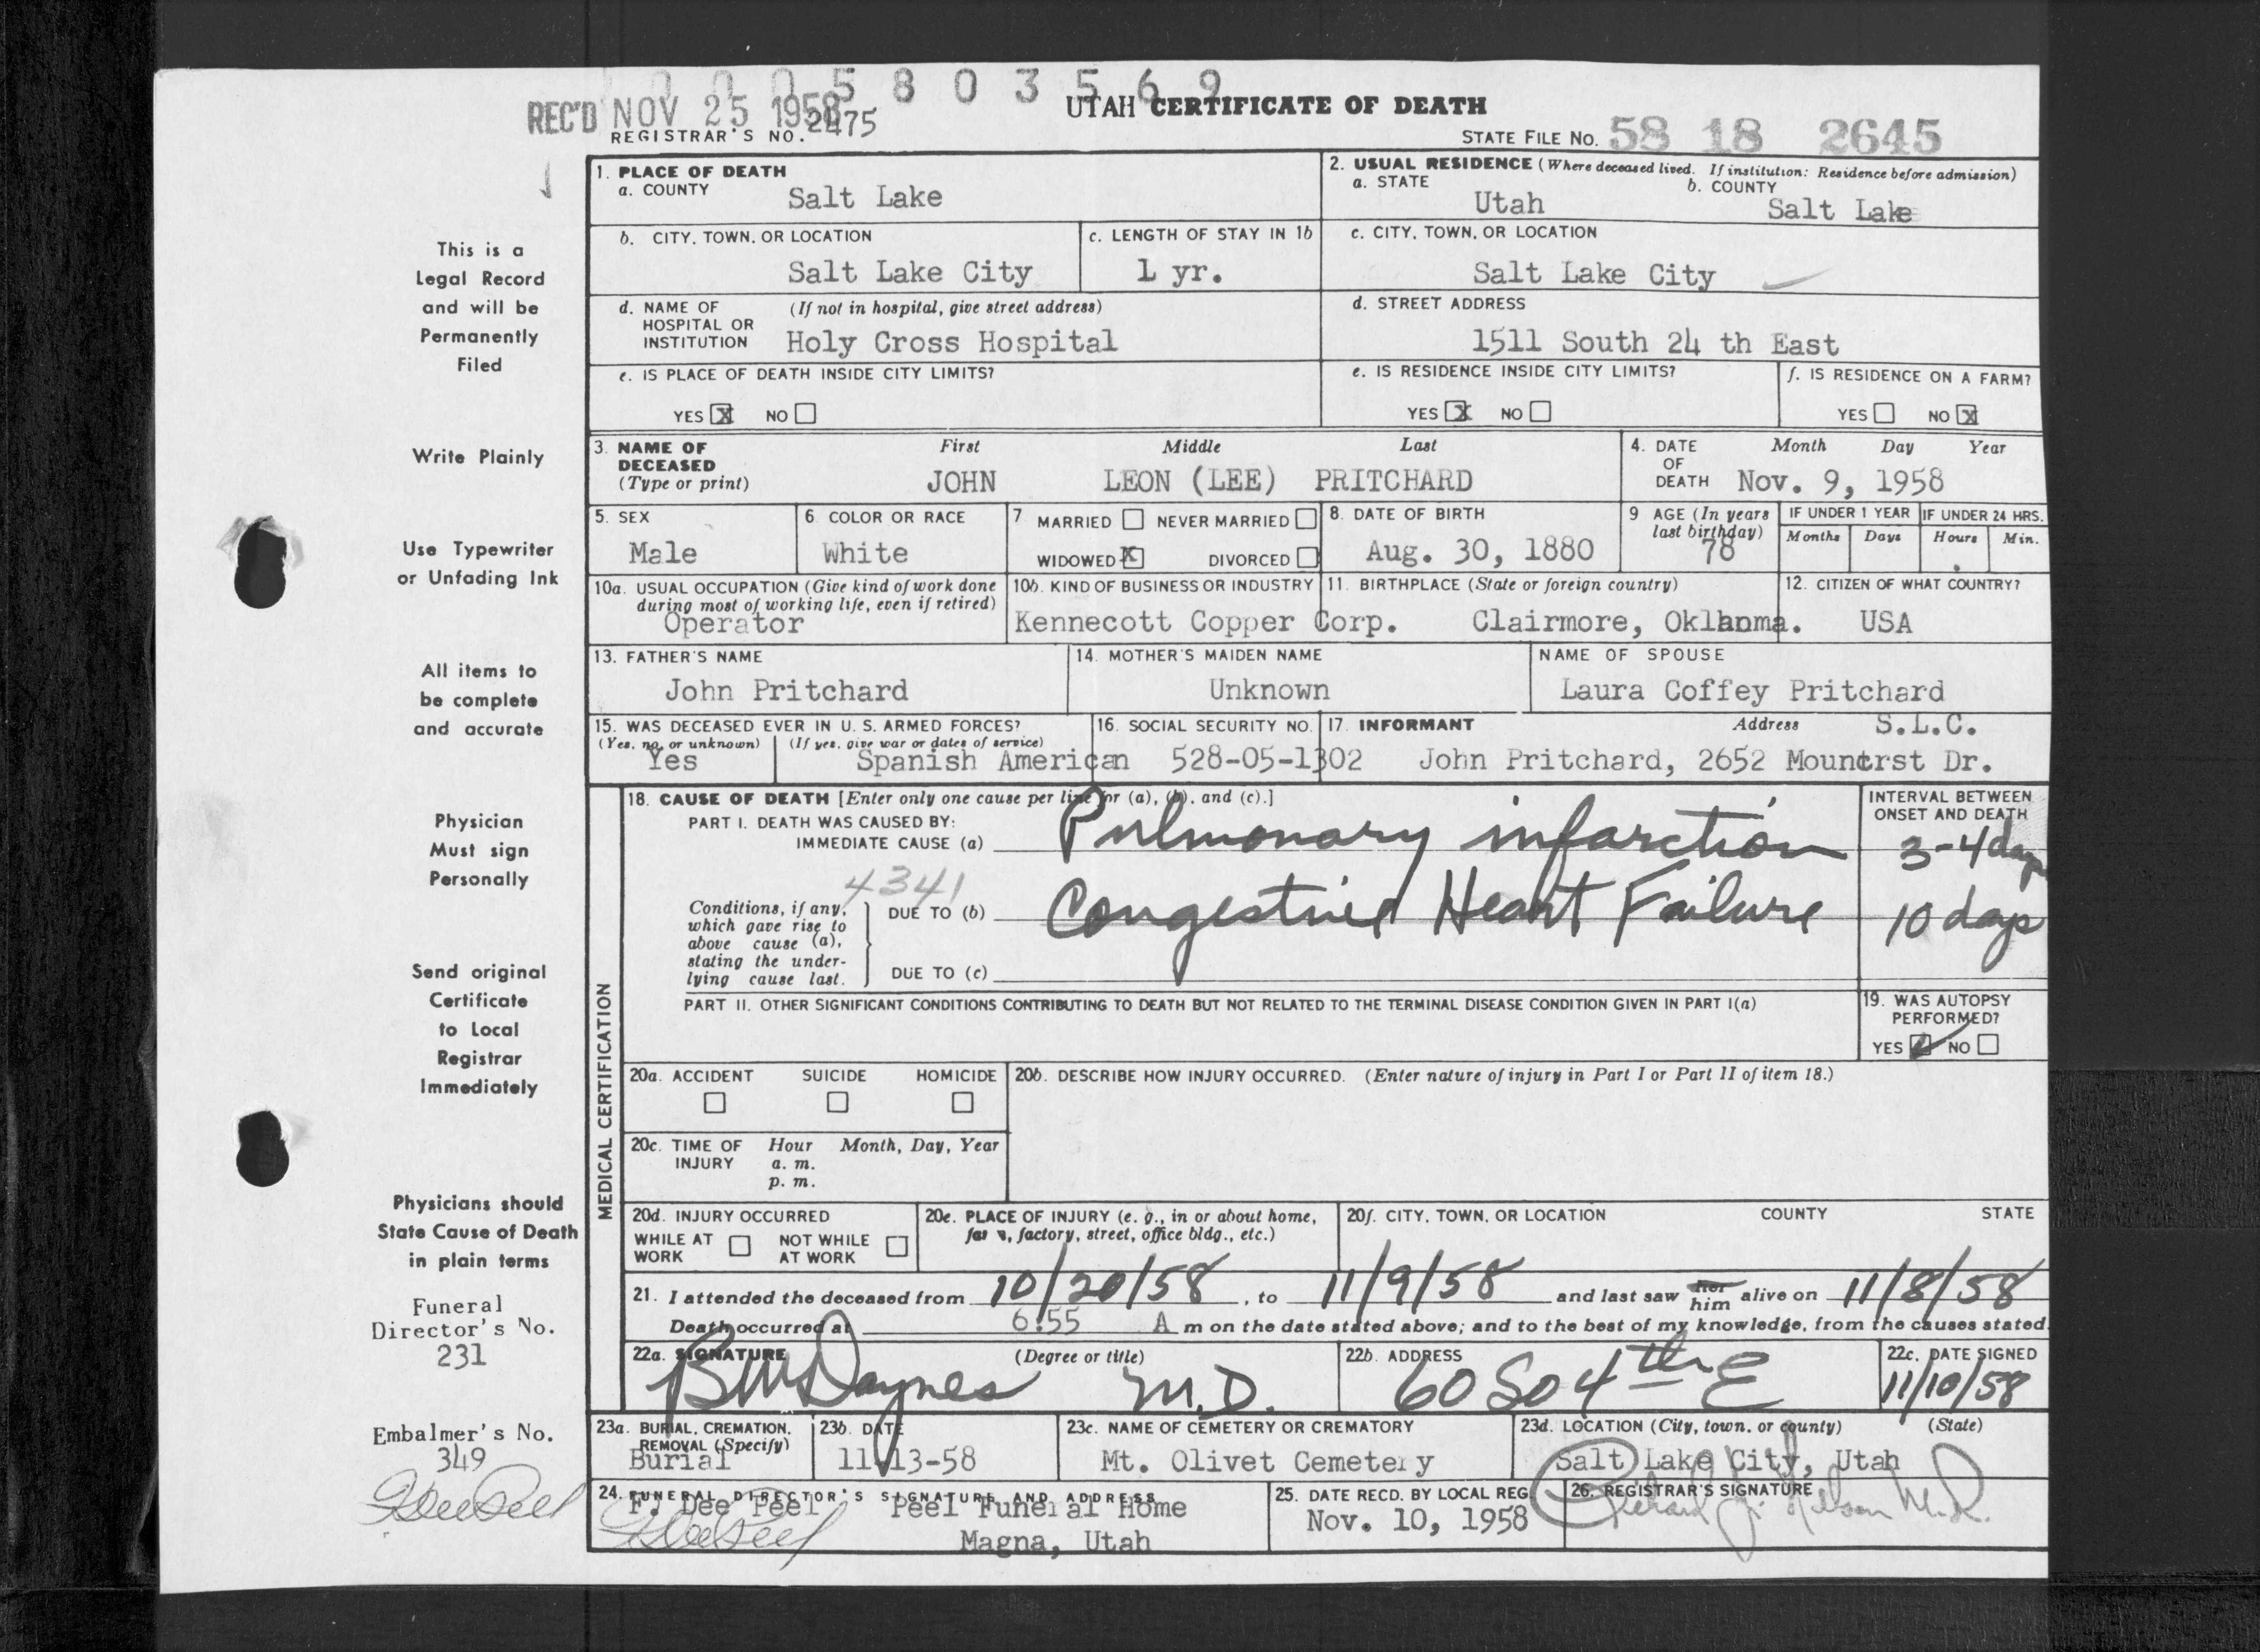 0 0 0 5 8 0 3 5 6 9
REC'D NOV 25 1958
UTAH CERTIFICATE OF DEATH
REGISTRAR'S NO. 2475
STATE FILE NO. 58 18 2645
This is a
Legal Record
and will be
Permanently
Filed
Write Plainly
Use Typewriter
or Unfading Ink
All items to
be complete
and accurate
Physician
Must sign
Personally
Send original
Certificate
to Local
Registrar
Immediately
Physicians should
State Cause of Death
in plain terms
Funeral
Director's No.
231
Embalmer's No.
349
1. PLACE OF DEATH
a. COUNTY
Salt Lake
2. USUAL RESIDENCE (Where deceased lived. If institution: Residence before admission)
a. STATE
Utah
b. COUNTY
Salt Lake
b. CITY, TOWN, OR LOCATION
Salt Lake City
c. LENGTH OF STAY IN 1b
1 yr.
c. CITY, TOWN, OR LOCATION
Salt Lake City
d. NAME OF HOSPITAL OR INSTITUTION
(If not in hospital, give street address)
Holy Cross Hospital
d. STREET ADDRESS
1511 South 24 th East
e. IS PLACE OF DEATH INSIDE CITY LIMITS?
YES X NO
e. IS RESIDENCE INSIDE CITY LIMITS?
YES X NO
f. IS RESIDENCE ON A FARM?
YES NO X
3. NAME OF DECEASED (Type or print)
First Middle Last
JOHN LEON (LEE) PRITCHARD
4. DATE OF DEATH
Month Day Year
Nov. 9, 1958
5. SEX
Male
6 COLOR OR RACE
White
7 MARRIED NEVER MARRIED
WIDOWED X DIVORCED
8. DATE OF BIRTH
Aug. 30, 1880
9 AGE (In years last birthday)
78
IF UNDER 1 YEAR
Months Days
IF UNDER 24 HRS.
Hours Min.
10a. USUAL OCCUPATION (Give kind of work done during most of working life, even if retired)
Operator
10b. KIND OF BUSINESS OR INDUSTRY
Kennecott Copper Corp.
11. BIRTHPLACE (State or foreign country)
Clairmore, Oklhoma.
12. CITIZEN OF WHAT COUNTRY?
USA
13. FATHER'S NAME
John Pritchard
14. MOTHER'S MAIDEN NAME
Unknown
NAME OF SPOUSE
Laura Coffey Pritchard
15. WAS DECEASED EVER IN U. S. ARMED FORCES?
(Yes, no, or unknown) (If yes, give war or dates of service)
Yes Spanish American
16. SOCIAL SECURITY NO.
528-05-1302
17. INFORMANT Address
S.L.C.
John Pritchard, 2652 Mountcrst Dr.
MEDICAL CERTIFICATION
18. CAUSE OF DEATH [Enter only one cause per line for (a), (b), and (c).]
PART I. DEATH WAS CAUSED BY:
IMMEDIATE CAUSE (a) Pulmonary infarction
INTERVAL BETWEEN ONSET AND DEATH
3-4 days
4341
Conditions, if any, which gave rise to above cause (a), stating the underlying cause last.
DUE TO (b) Congestive Heart Failure
10 days
DUE TO (c)
PART II. OTHER SIGNIFICANT CONDITIONS CONTRIBUTING TO DEATH BUT NOT RELATED TO THE TERMINAL DISEASE CONDITION GIVEN IN PART I(a)
19. WAS AUTOPSY PERFORMED?
YES NO
20a. ACCIDENT SUICIDE HOMICIDE
20b. DESCRIBE HOW INJURY OCCURRED. (Enter nature of injury in Part I or Part II of item 18.)
20c. TIME OF INJURY
Hour Month, Day, Year
a. m.
p. m.
20d. INJURY OCCURRED
WHILE AT WORK NOT WHILE AT WORK
20e. PLACE OF INJURY (e. g., in or about home, farm, factory, street, office bldg., etc.)
20f. CITY, TOWN, OR LOCATION COUNTY STATE
21. I attended the deceased from 10/20/58, to 11/9/58 and last saw her him alive on 11/8/58
Death occurred at 6:55 A m on the date stated above; and to the best of my knowledge, from the causes stated.
22a. SIGNATURE (Degree or title)
BW Daynes M.D.
22b. ADDRESS
60 So 4th E
22c. DATE SIGNED
11/10/58
23a. BURIAL, CREMATION, REMOVAL (Specify)
Burial
23b. DATE
11-13-58
23c. NAME OF CEMETERY OR CREMATORY
Mt. Olivet Cemetery
23d. LOCATION (City, town, or county) (State)
Salt Lake City, Utah
24. FUNERAL DIRECTOR'S SIGNATURE AND ADDRESS
F. Dee Peel Peel Funeral Home
Magna, Utah
25. DATE RECD. BY LOCAL REG.
Nov. 10, 1958
26. REGISTRAR'S SIGNATURE